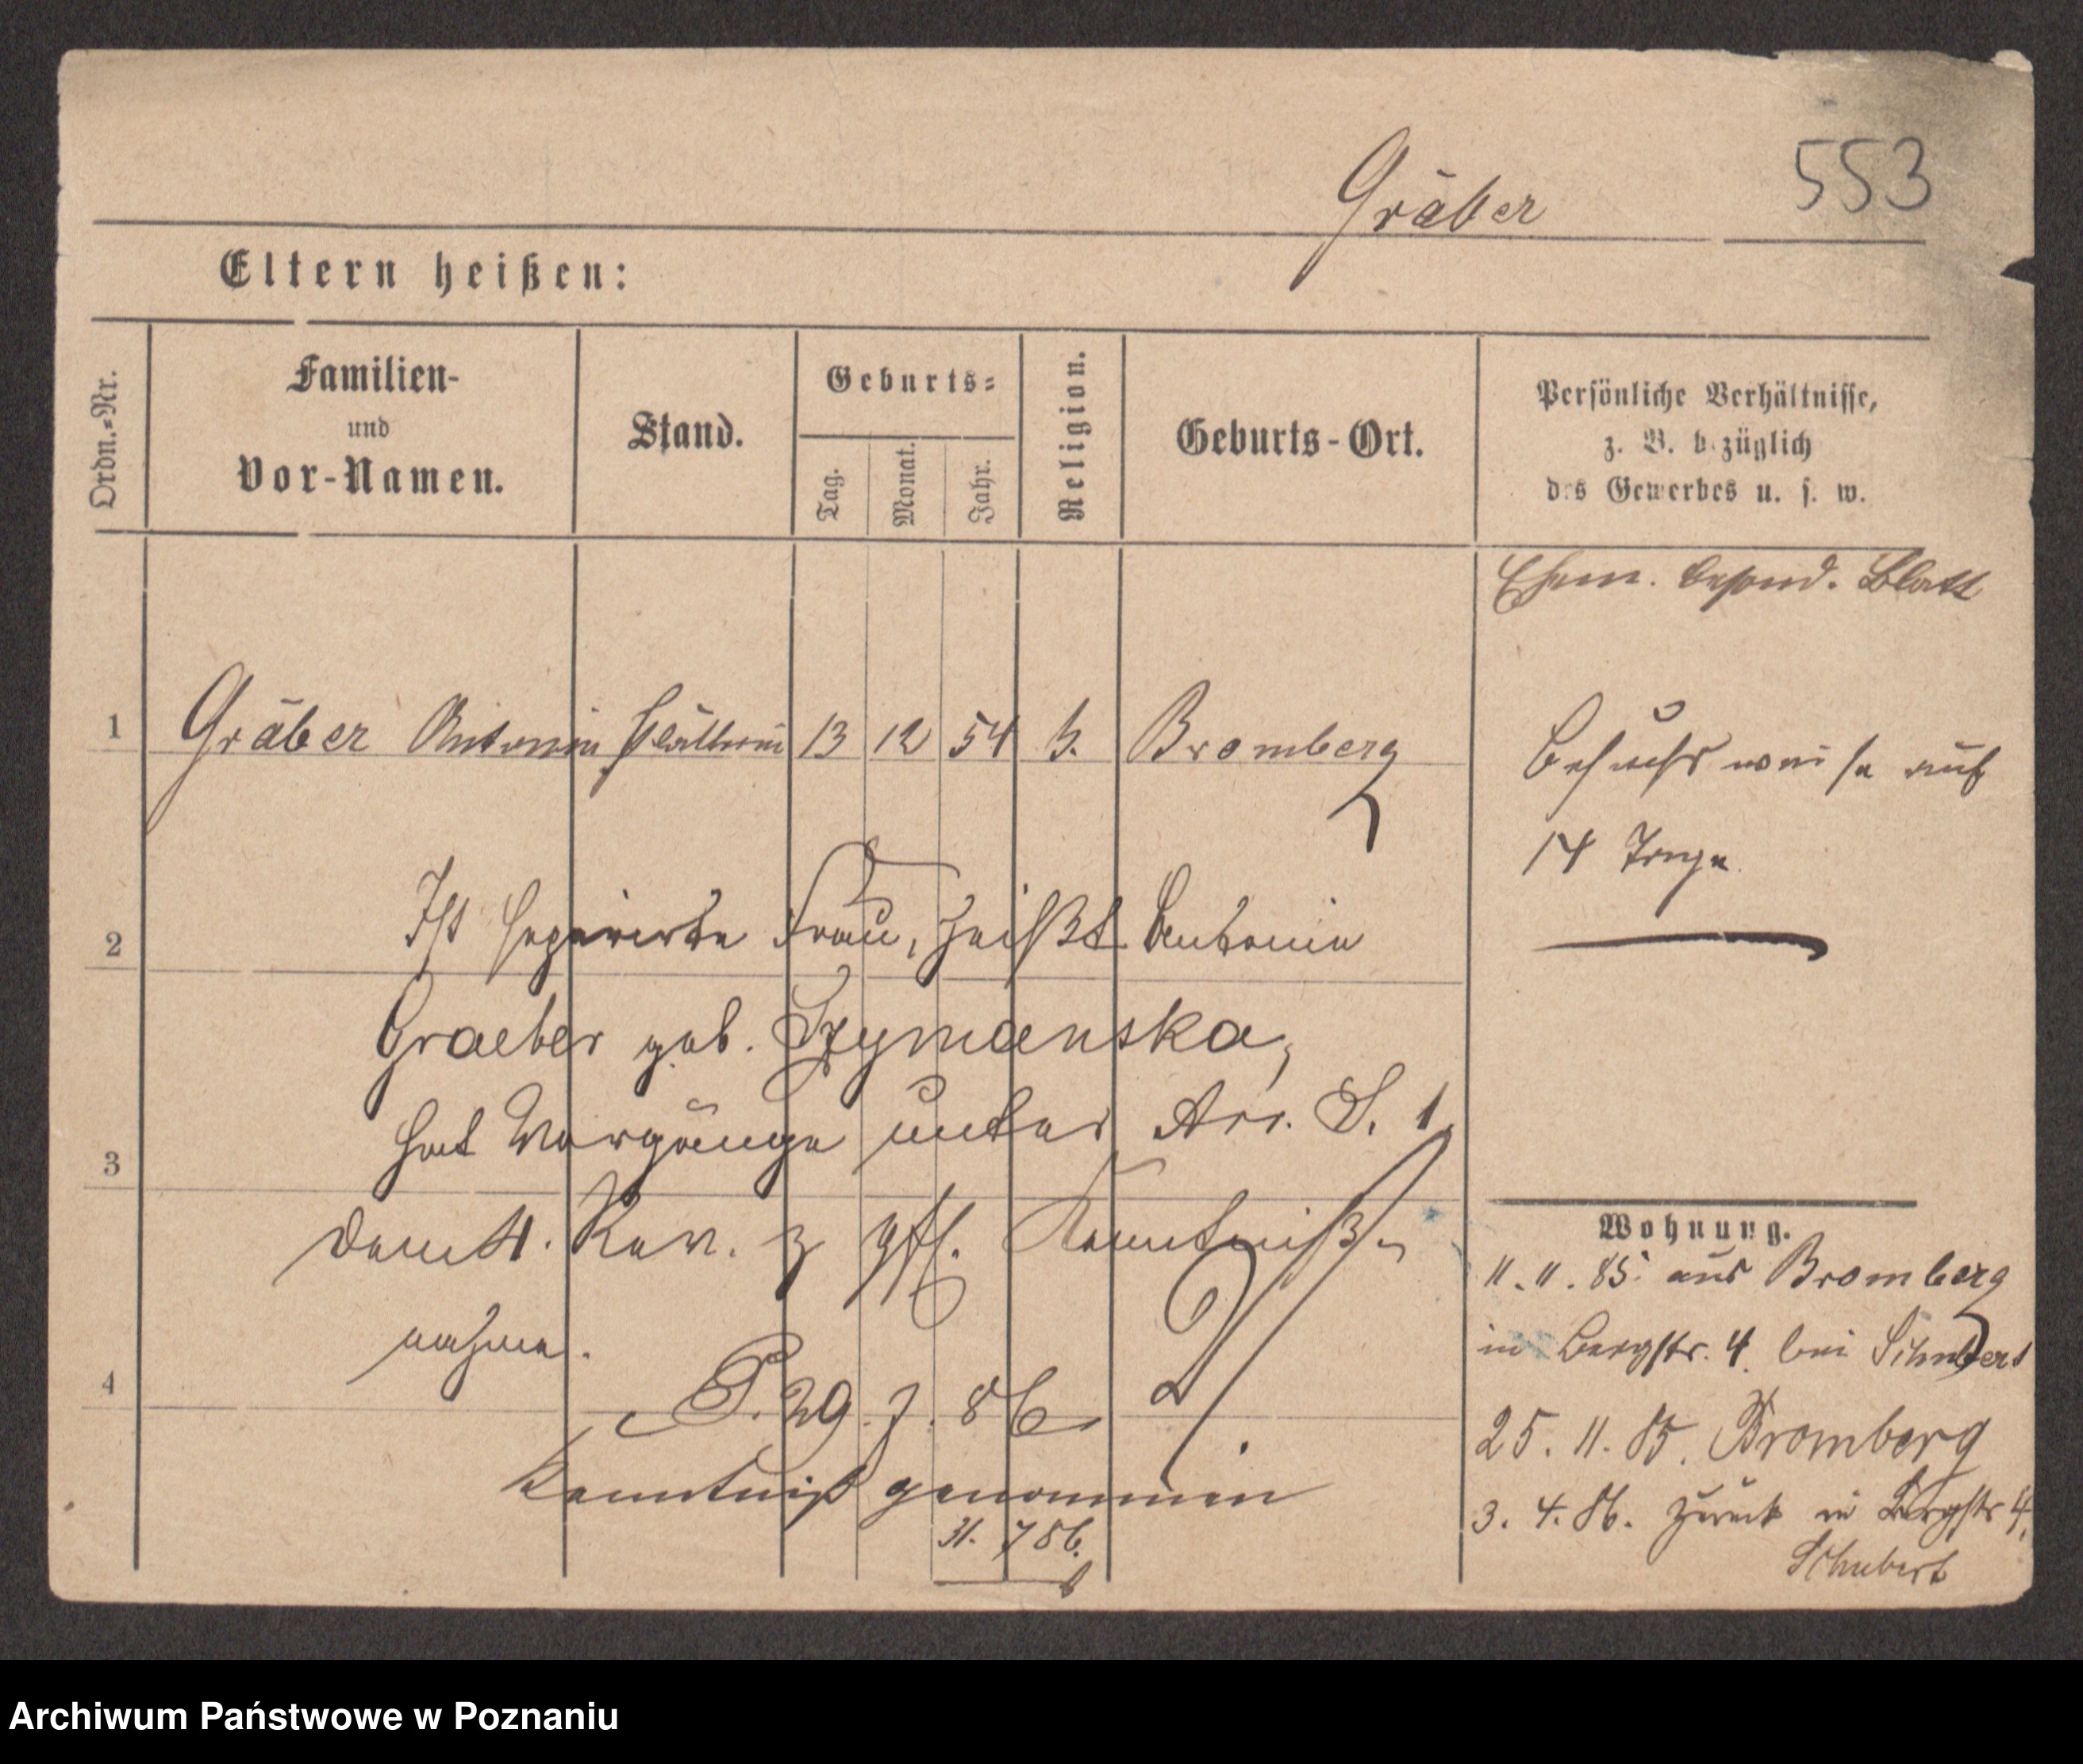 Gräber
553
Eltern heißen:
Ordn.-Nr.
Familien-
und
Vor-Namen.
Stand.
Geburts-
Tag.
Monat.
Jahr.
Religion.
Geburts-Ort.
Persönliche Verhältnisse,
z. B. bezüglich
des Gewerbes u. s. w.
Ehem. besond. Blatt
1 Gräber Antonie Plätterin 13 12 54 k. Bromberg
Besuchsweise auf
14 Tage.
2 Ist separirte Frau, heißt Antonie
Graeber geb. Szymanska,
3 hat Vorgänge unter Arr. S. 1.
Rev. z gfl. Kenntniß-
nahme.
4 P. 29. 7. 86
Kenntniß genommen
31. 7 86.
Wohnung.
11. 11. 85. aus Bromberg
in Bergstr. 4. bei Schubert
25. 11. 85. Bromberg
3. 4. 86. zurück in Bergstr 4.
Schubert
Archiwum Państwowe w Poznaniu